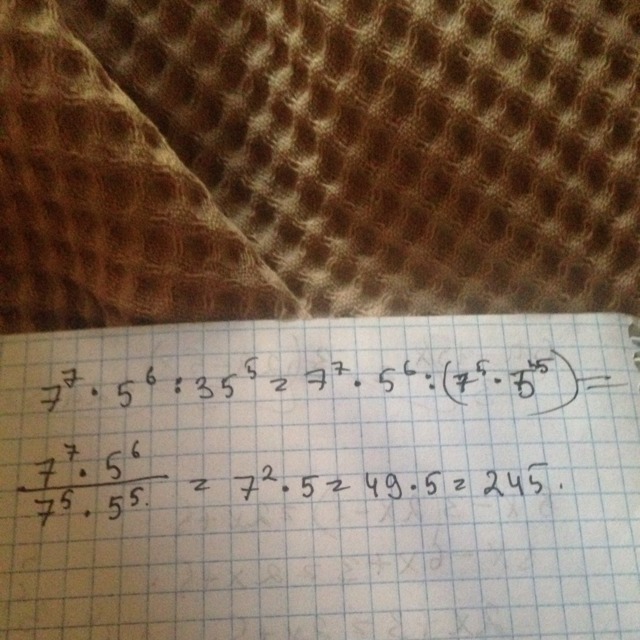 7⁷ · 5⁶ : 35⁵ = 7⁷ · 5⁶ : (7⁵ · 5⁵) =
7⁷ · 5⁶ / 7⁵ · 5⁵ = 7² · 5 = 49 · 5 = 245.